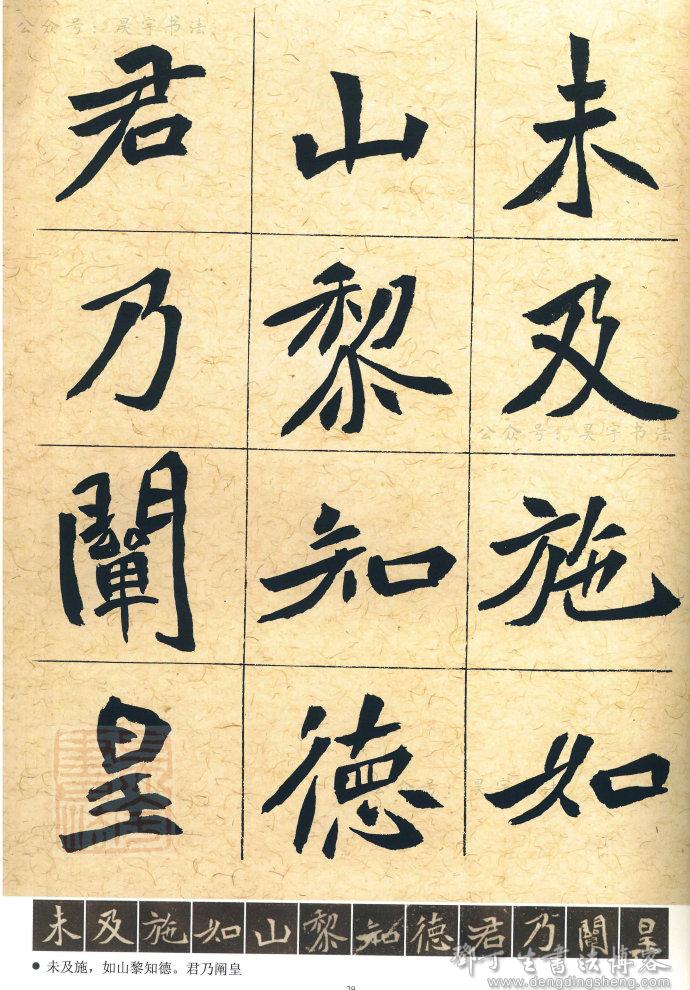 公众号：昊宇书法
未及施如
山黎知德
君乃闡皇
公众号：昊宇书法
未及施如山黎知德君乃闡皇
● 未及施，如山黎知德。君乃阐皇
29
邓丁生书法博客
www.dengdingsheng.com